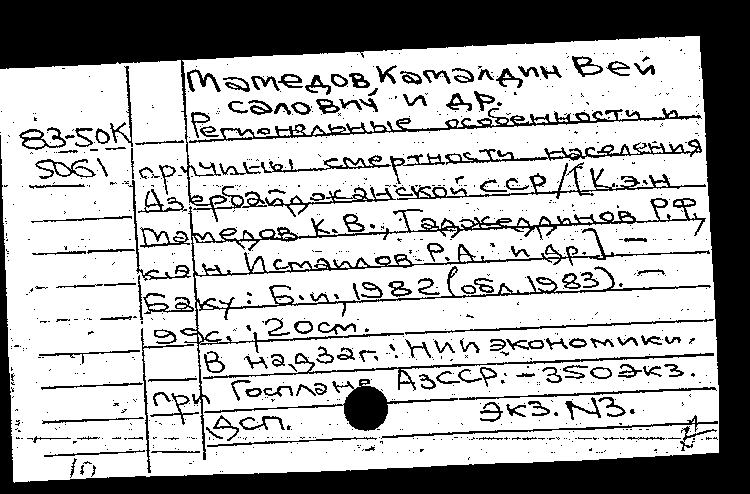 Мамедов Камалдин Вей
салович и др.
83-50К Региональные особенности и
5061 причины смертности населения
Азербайджанской ССР / [К.э.н
Мамедов К.В., Таджеддинов Р.Ф.,
к.э.н. Исмаилов Р.А. и др.]. —
Баку: Б.и., 1982 (обл. 1983). —
99с.; 20см.
В надзаг.: НИИ экономики.
при Госплане АзССР. — 350 экз.
ДСП. Экз. N3.
10